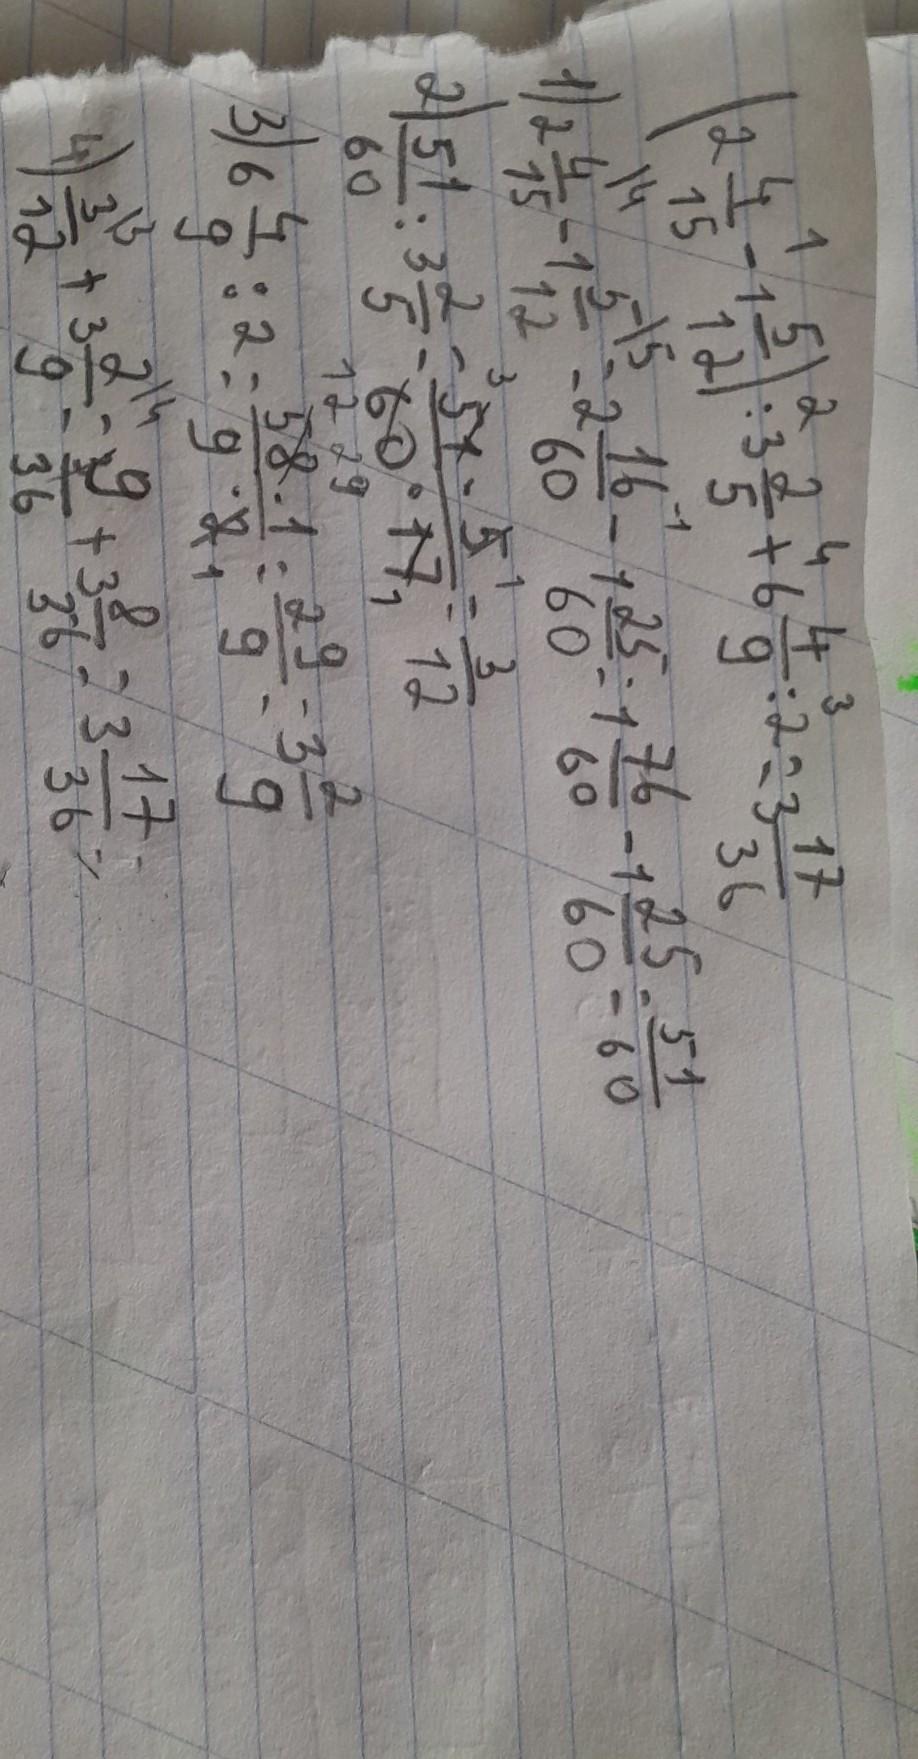 (2 4/15 - 1 5/12) : 3 2/5 + 6 4/9 : 2 = 3 17/36
1) 2 4/15 - 1 5/12 = 2 16/60 - 1 25/60 = 1 76/60 - 1 25/60 = 51/60
2) 51/60 : 3 2/5 = 51·5/60·17 = 3/12
3) 6 4/9 : 2 = 58·1/9·2 = 29/9 = 3 2/9
4) 3/12 + 3 2/9 = 9/36 + 3 8/36 = 3 17/36